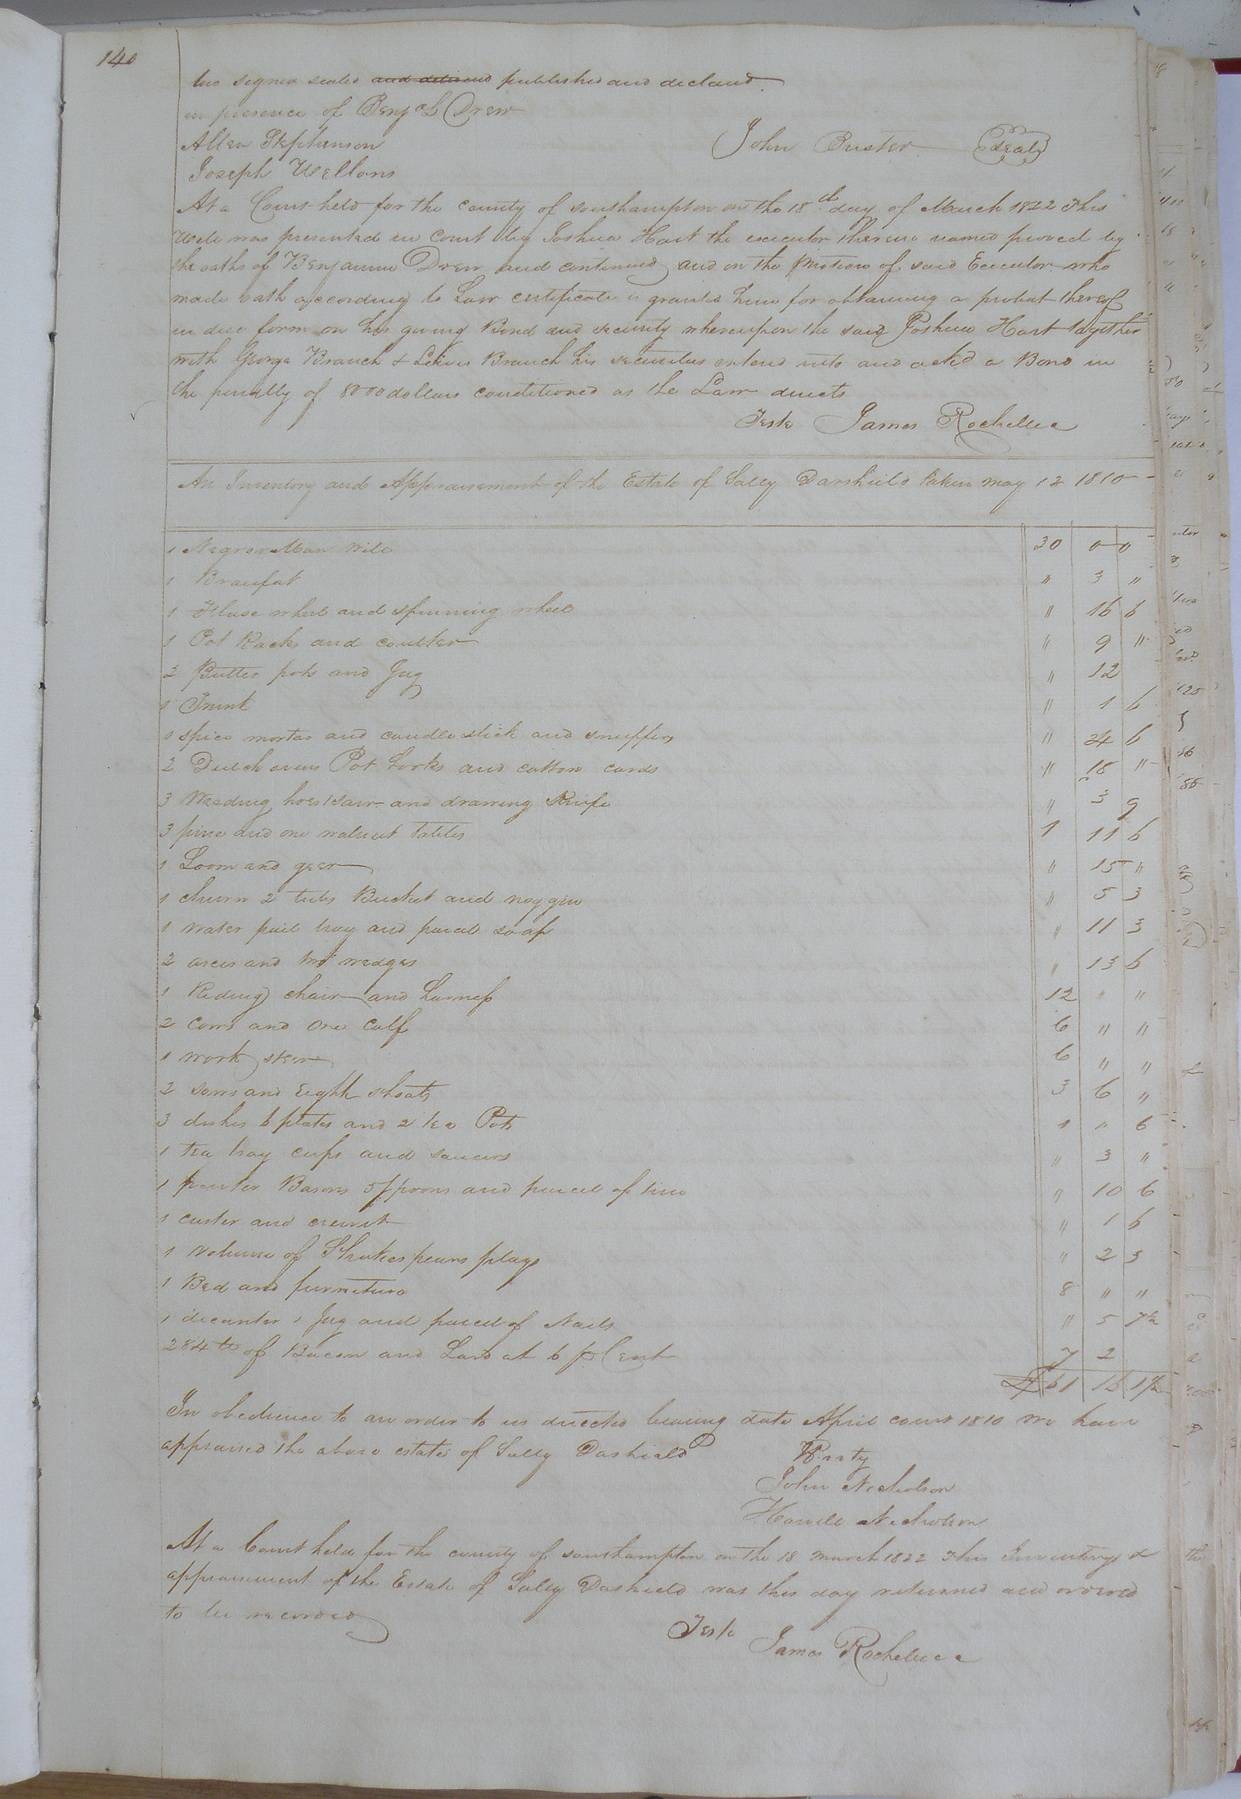 140
signed sealed and delivered published and declared
in presence of Benja Drew
Allen Stephenson
John Buster Seal
Joseph Wellons
At a Court held for the county of Southampton on the 18th day of March 1822 This
Will was presented in Court by Joshua Hart the executor therein named proved by
the oaths of Benjamin Drew and continued and on the motion of said Executor who
made oath according to Law certificate is granted him for obtaining a probat thereof
in due form on his giving Bond and security whereupon the said Joshua Hart together
with George Branch & Branch his securities entered into and a Bond in
the penalty of 8000 dollars conditioned as the Law directs
Teste James Rochelle
An Inventory and Appraisement of the Estate of Sally Darshield taken may 12 1810
1 Negroe Man Will 30 0 0
1 " 3 "
1 wheel and spinning wheel " 16 6
1 Pot Racks and coulter " 9 "
2 Butter pots and Jug " 12
1 Trunk " 1 6
1 spice mortar and candle stick and snuffers " 24 6
2 Dutch ovens Pot hooks and cotton cards " 18 "
3 Weeding hoes 1 saw and drawing Knife " 3 9
3 pine and one walnut tables 1 11 6
1 Loom and geer " 15 "
1 churn 2 tubs Bucket and noggin " 5 3
1 water pail tray and parcel soap " 11 3
2 axes and two wedges " 13 6
1 Riding chair and harness 12 " "
2 cows and one calf 6 " "
1 work steer 6 " "
2 sows and Eight shoats 3 6 "
3 dishes 6 plates and 2 tea Pots 1 " 6
1 tea tray cups and saucers " 3 "
1 pewter Bason spoons and parcel of " 10 6
1 caster and cruet " 1 6
1 volume of Shakespears plays " 2 3
1 Bed and furniture 8 " "
1 decanter 1 Jug and parcel of Nails " 5 7½
284 lb of Bacon and Lard at 6 p Cent 7 2
61 16 1½
In obedience to an order to us directed bearing date April court 1810 We have
appraised the above estate of Sally Dashield
John Nicholson
Nicholson
At a Court held for the county of Southampton on the 18 march 1822 This Inventory &
appraisement of the Estate of Sally Dashield was this day returned and ordered
to be recorded
Teste
James Rochelle